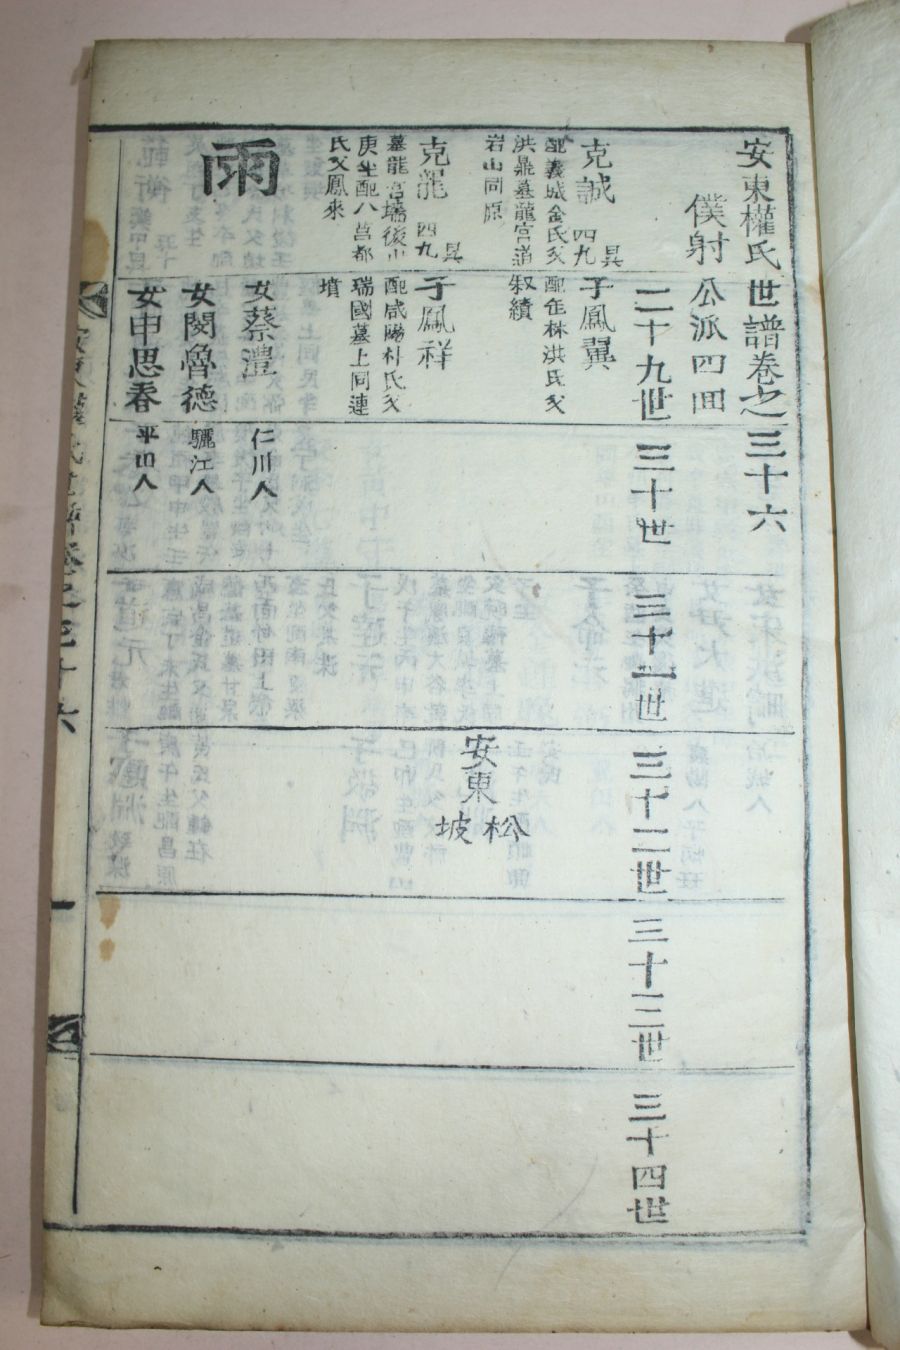 安東權氏世譜卷之三十六
僕射公派四回
二十九世
三十世
三十一世
三十二世
三十三世
三十四世
克誠 四九 昃
配義城金氏父
洪鼎墓龍宮道
岩山同原
子鳳翼
配缶林洪氏父
叙績
克龍 四九 昃
墓龍宮場後山
庚坐配八莒都
氏父鳳來
子鳳祥
配咸陽朴氏父
瑞國墓上同連
墳
雨
女蔡澧 仁川人
女閔魯德 驪江人
女申思春 平山人
安東
松坡
安東權氏世譜卷之三十六
一